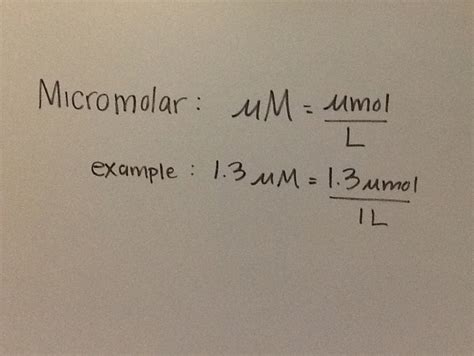 Micromolar: μM = μmol/L
example: 1.3 μM = 1.3 μmol/1L